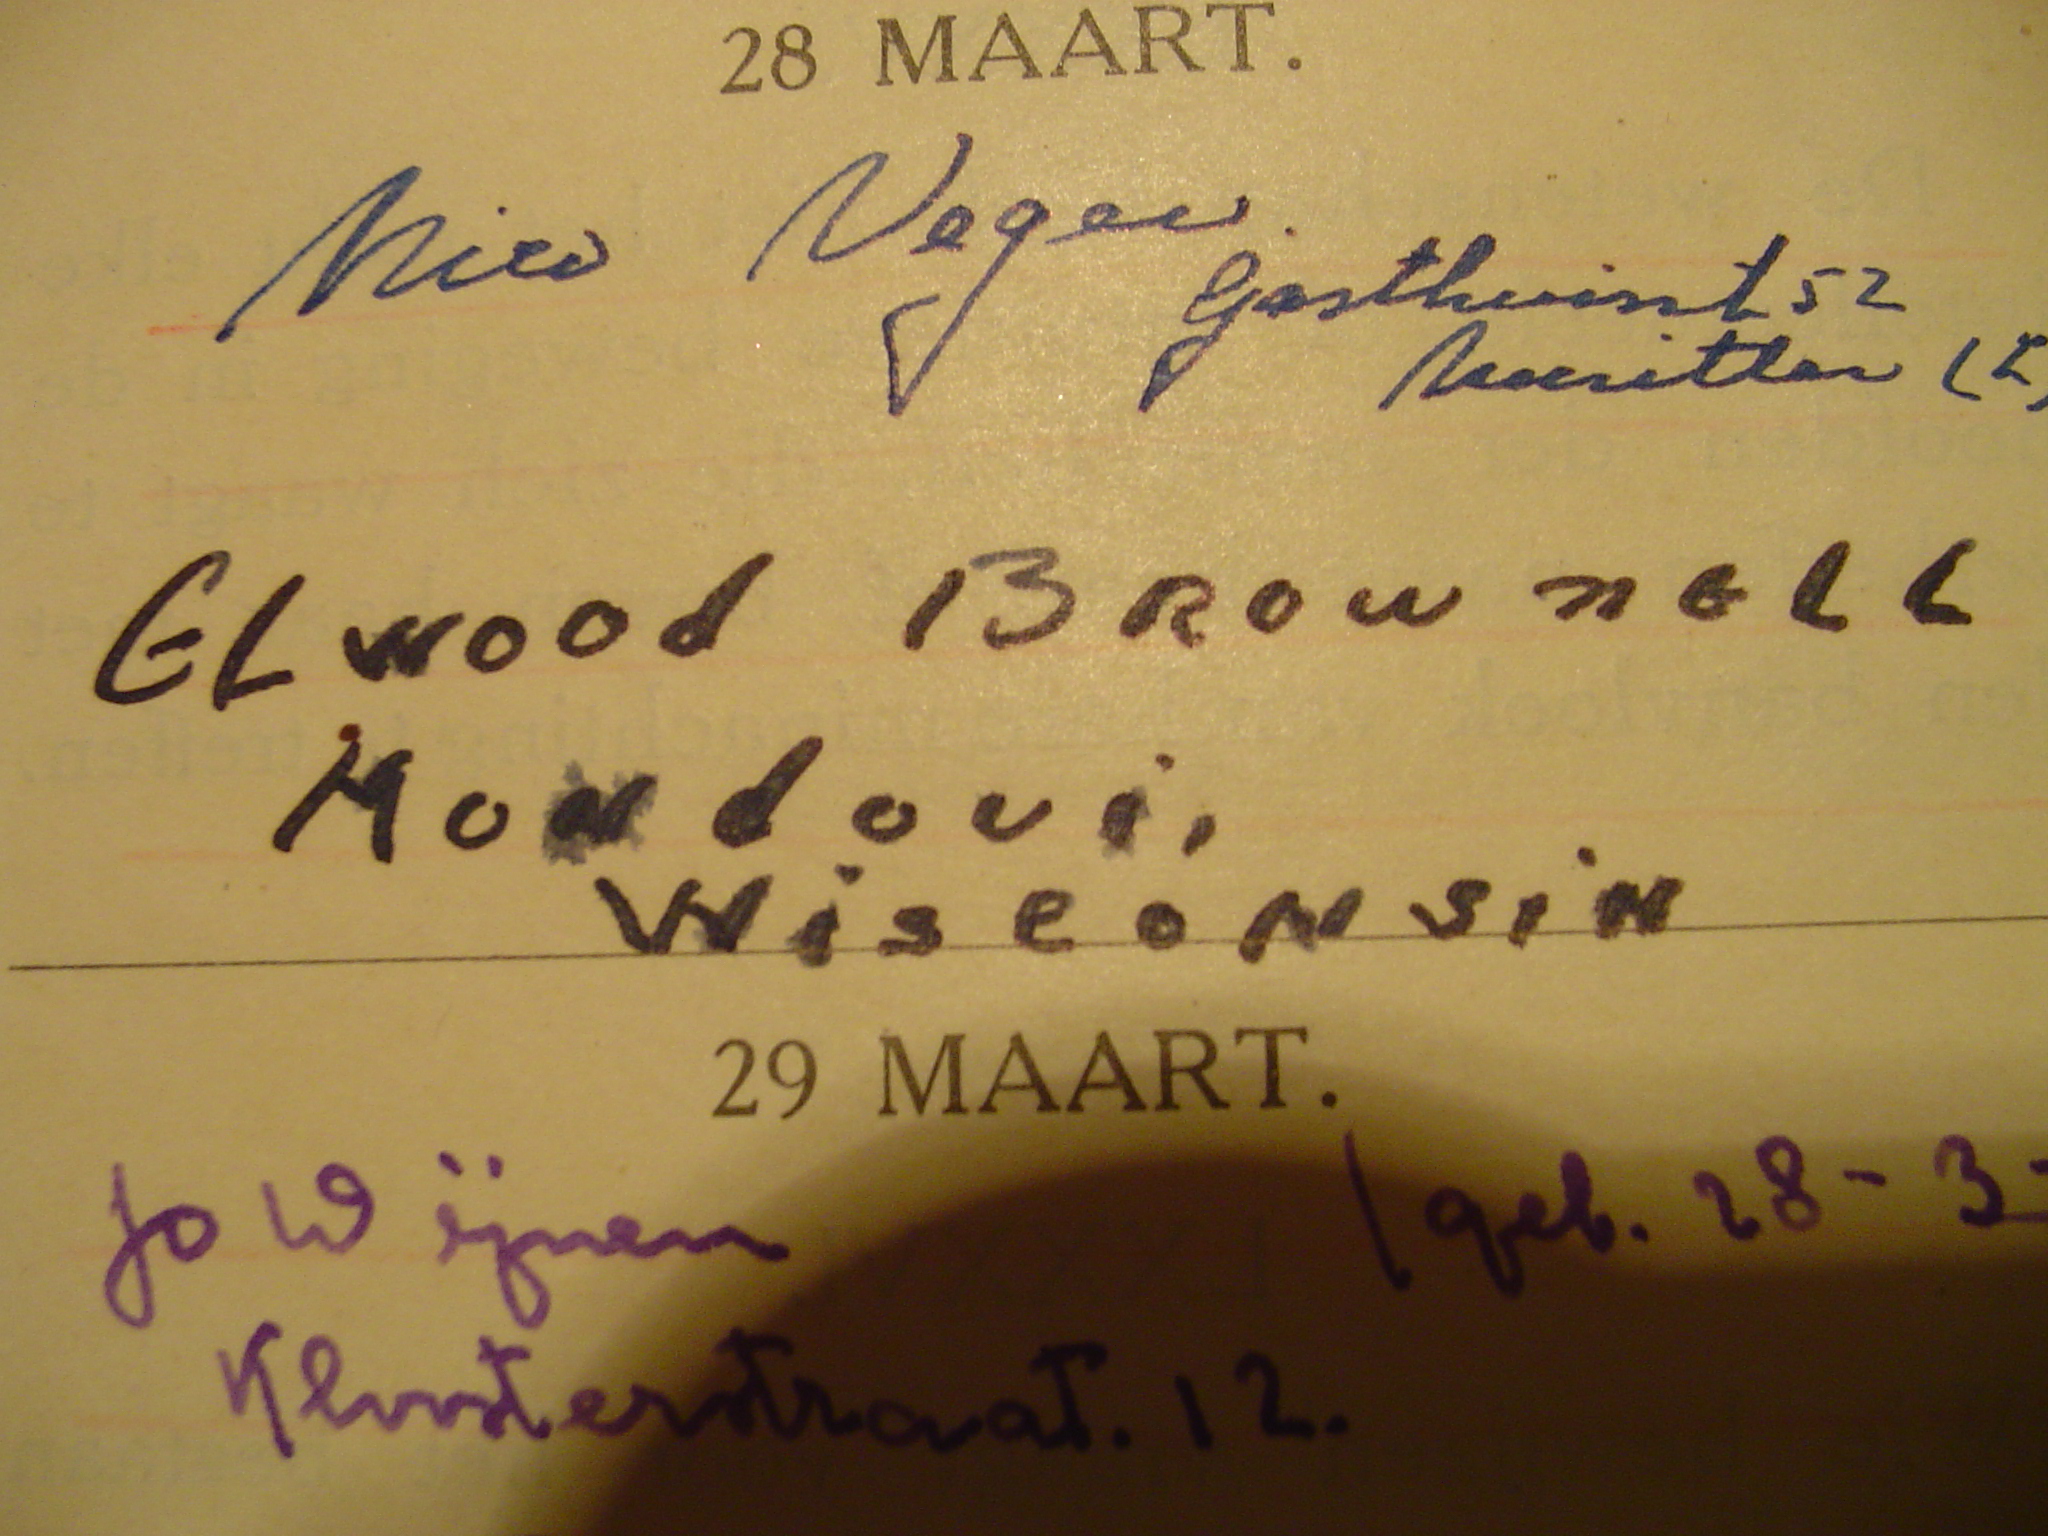 28 MAART.
Nico Veger
52
Elwood Brownell
Mondovi,
Wisconsin
29 MAART.
Jo Wijnen (geb. 28-3-
Kloosterstraat. 12.